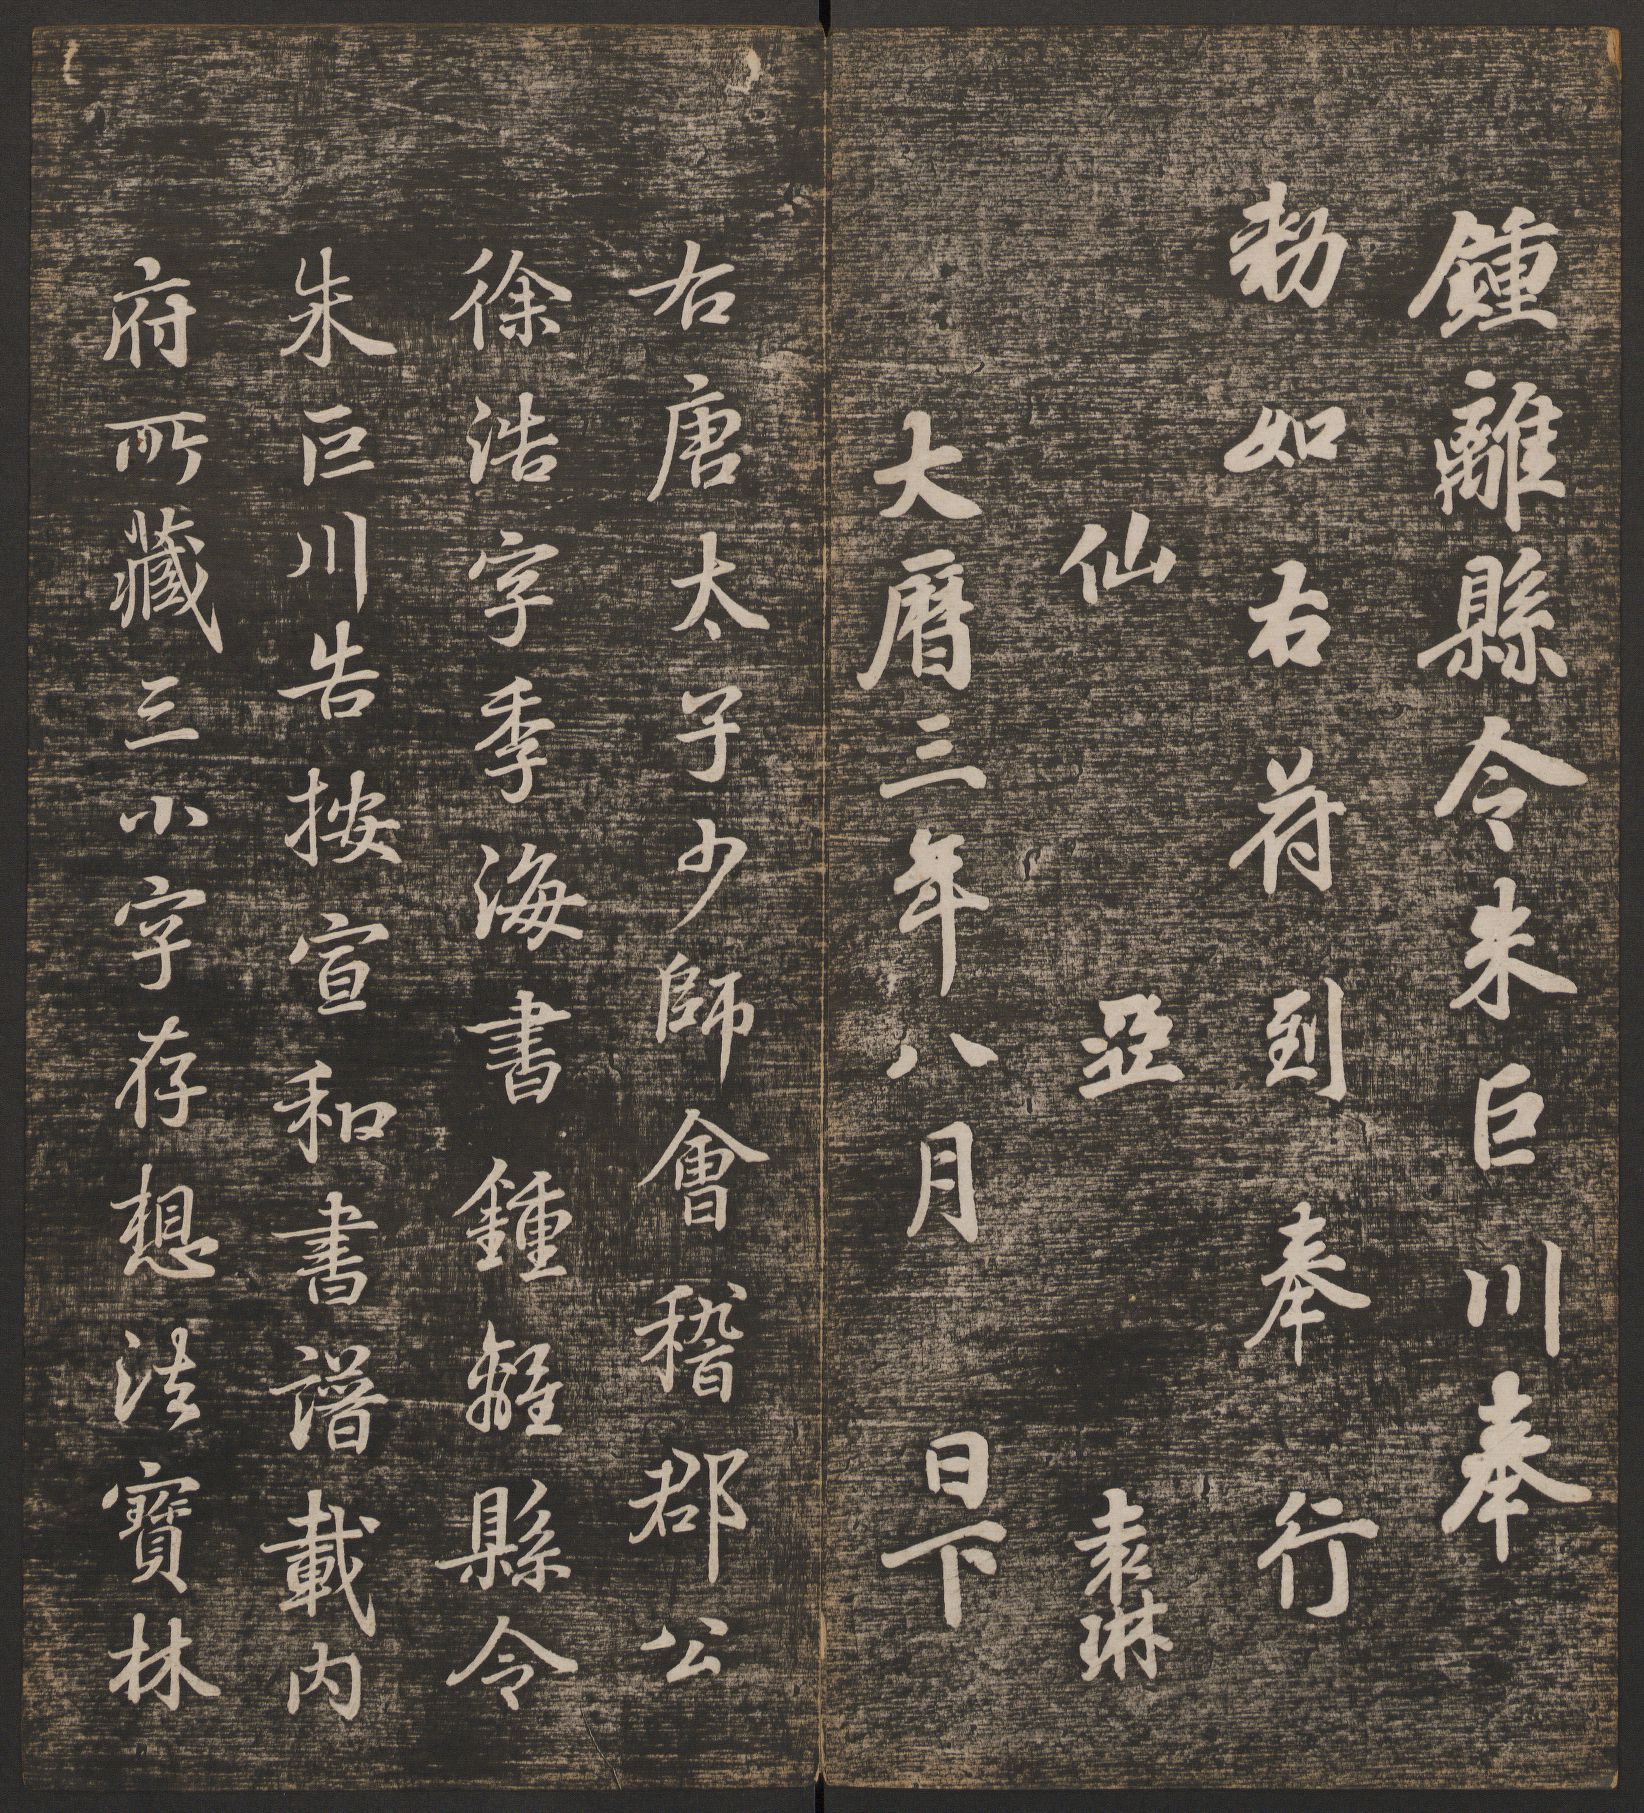 鍾離縣令朱巨川奉
勑如右符到奉行
仙 亞 袁琳
大曆三年八月 日下
右唐太子少師會稽郡公
徐浩字季海書鍾離縣令
朱巨川告按宣和書譜載內
府所藏三小字存想法寶林